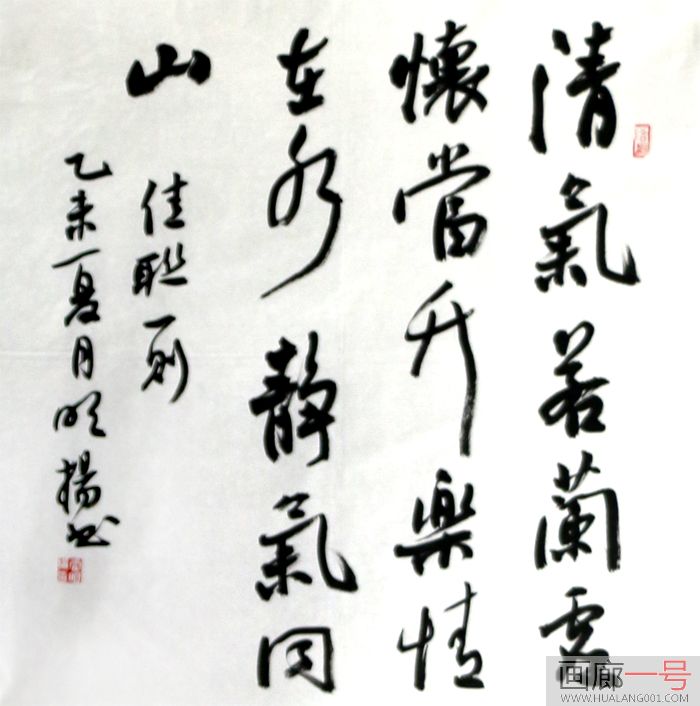 清氣若蘭虚
懷當竹樂情
在水靜氣同
山
佳聯一则
乙未夏月明揚书
画廊一号
WWW.HUALANG001.COM